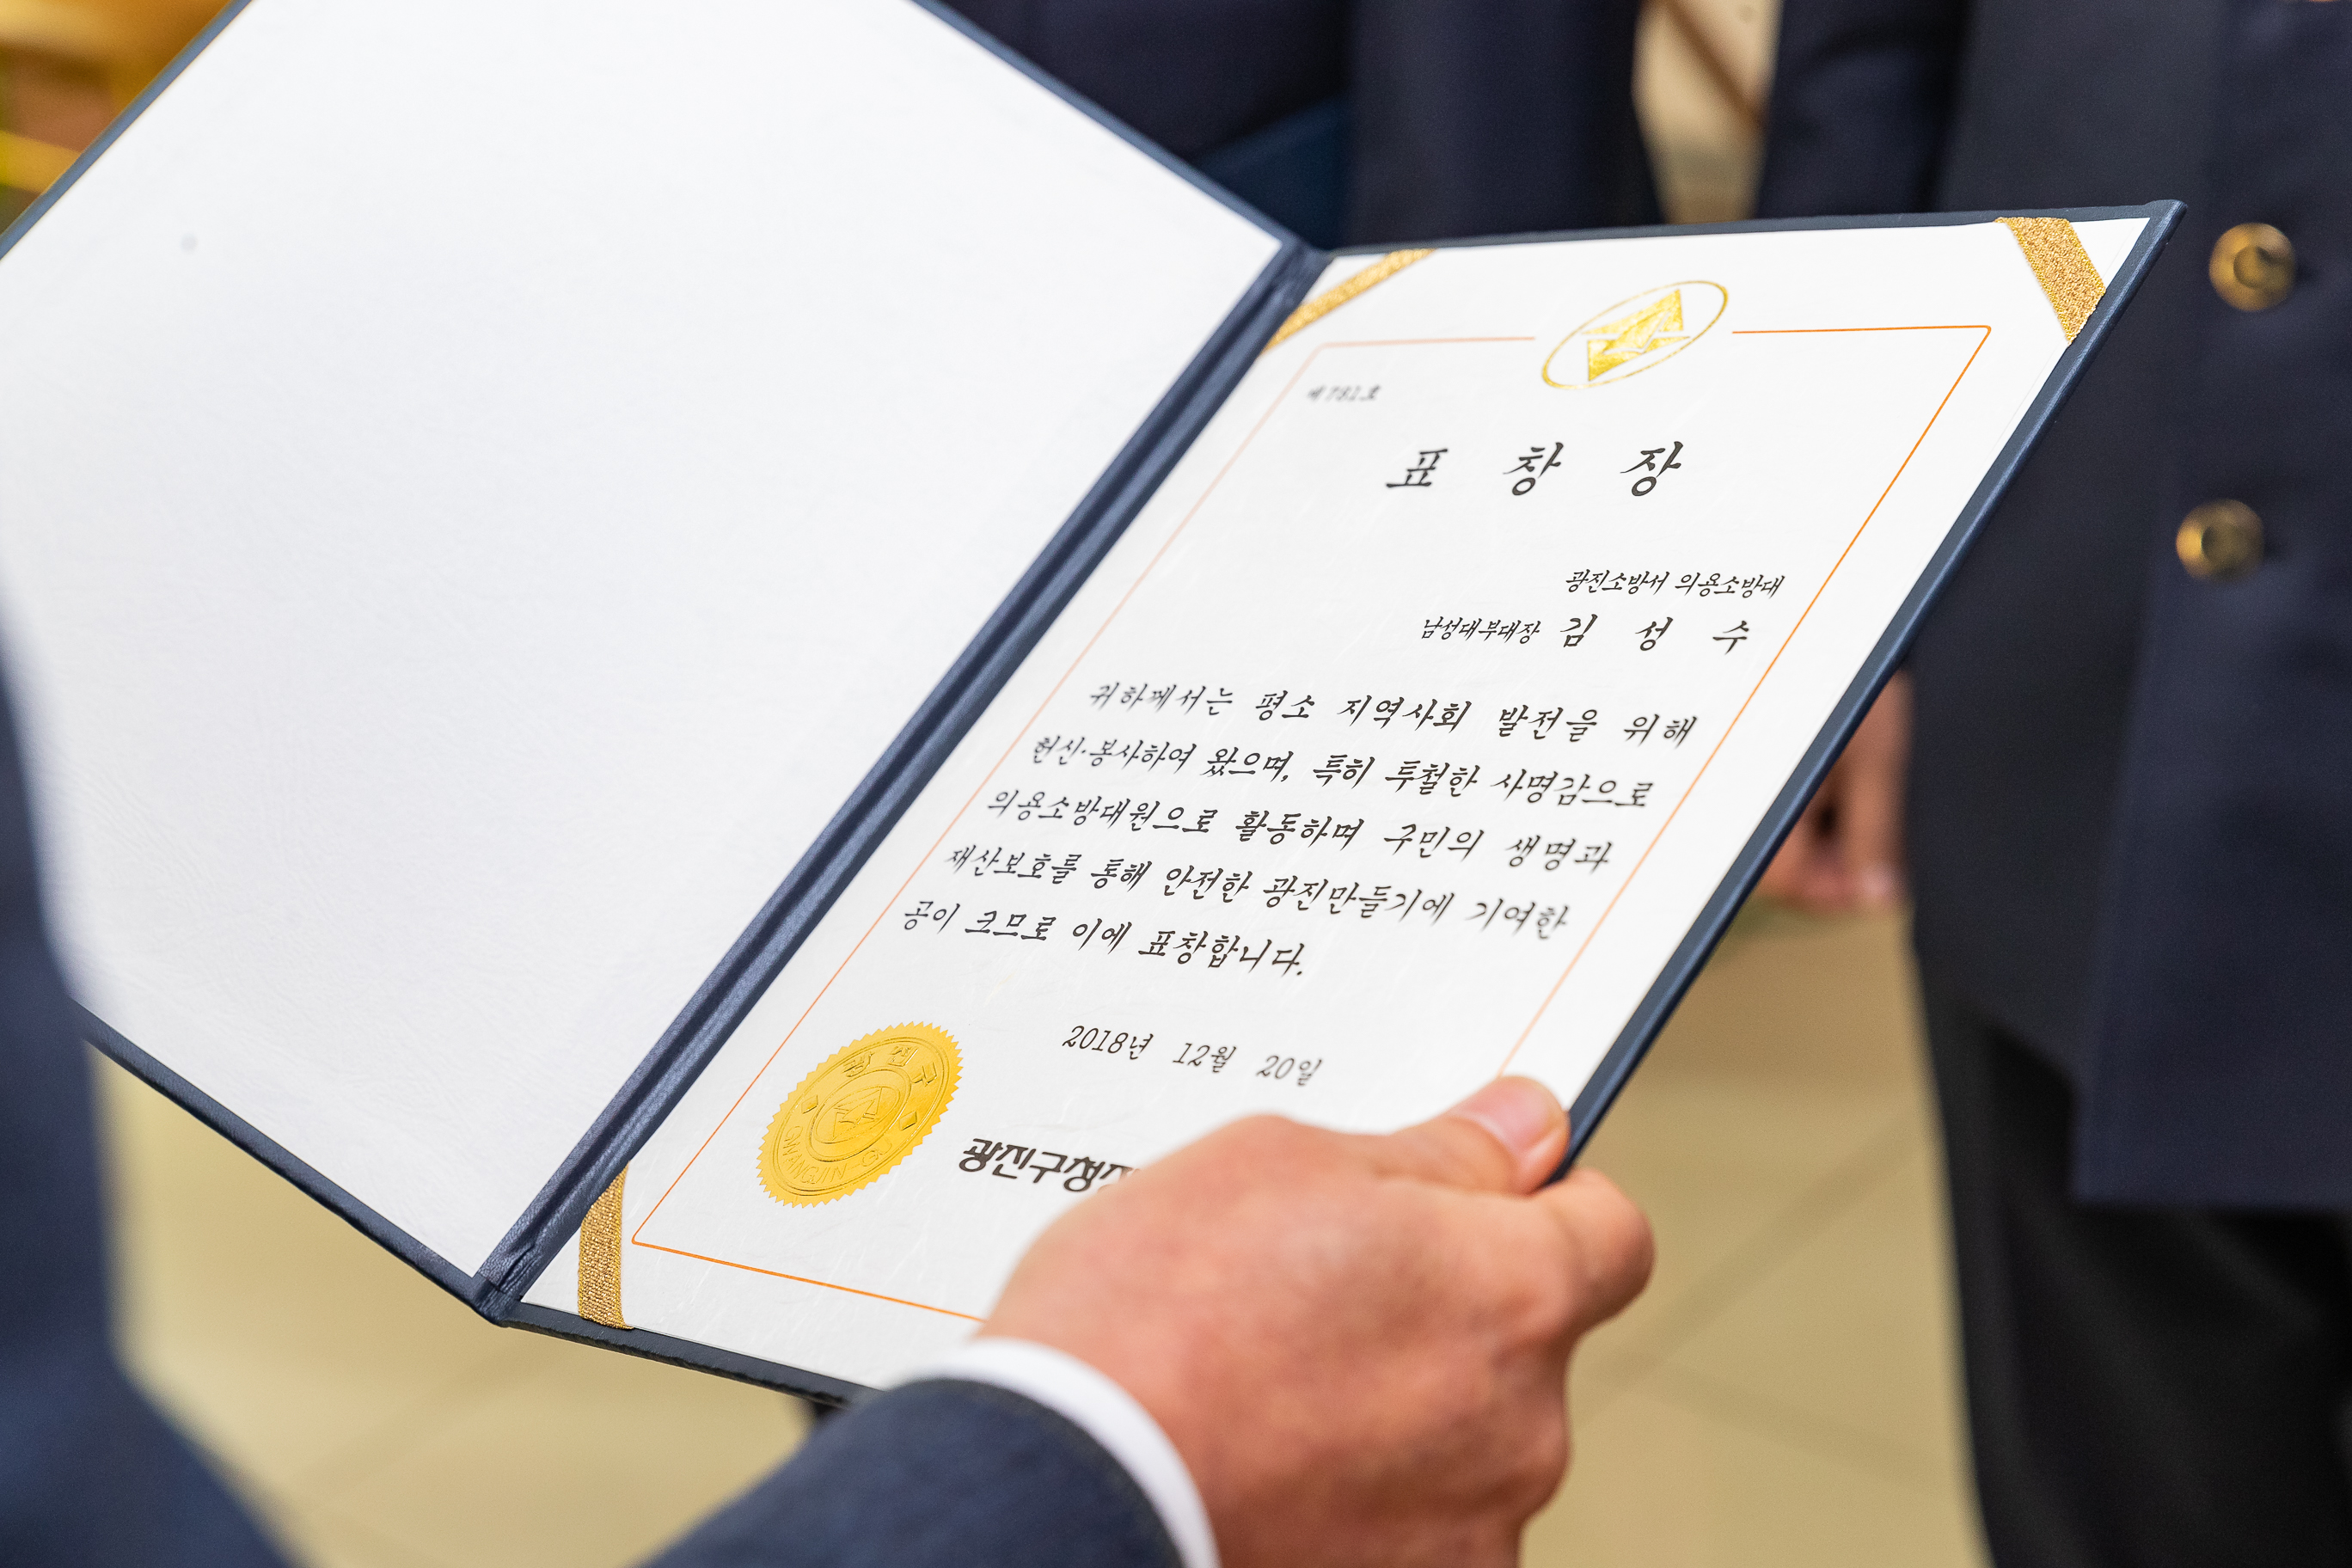 제781호
표 창 장
광진소방서 의용소방대
남성대부대장 김 성 수
귀하께서는 평소 지역사회 발전을 위해
헌신·봉사하여 왔으며, 특히 투철한 사명감으로
의용소방대원으로 활동하며 구민의 생명과
재산보호를 통해 안전한 광진만들기에 기여한
공이 크므로 이에 표창합니다.
2018년 12월 20일
광진구
GWANGJIN-GU
광진구청장